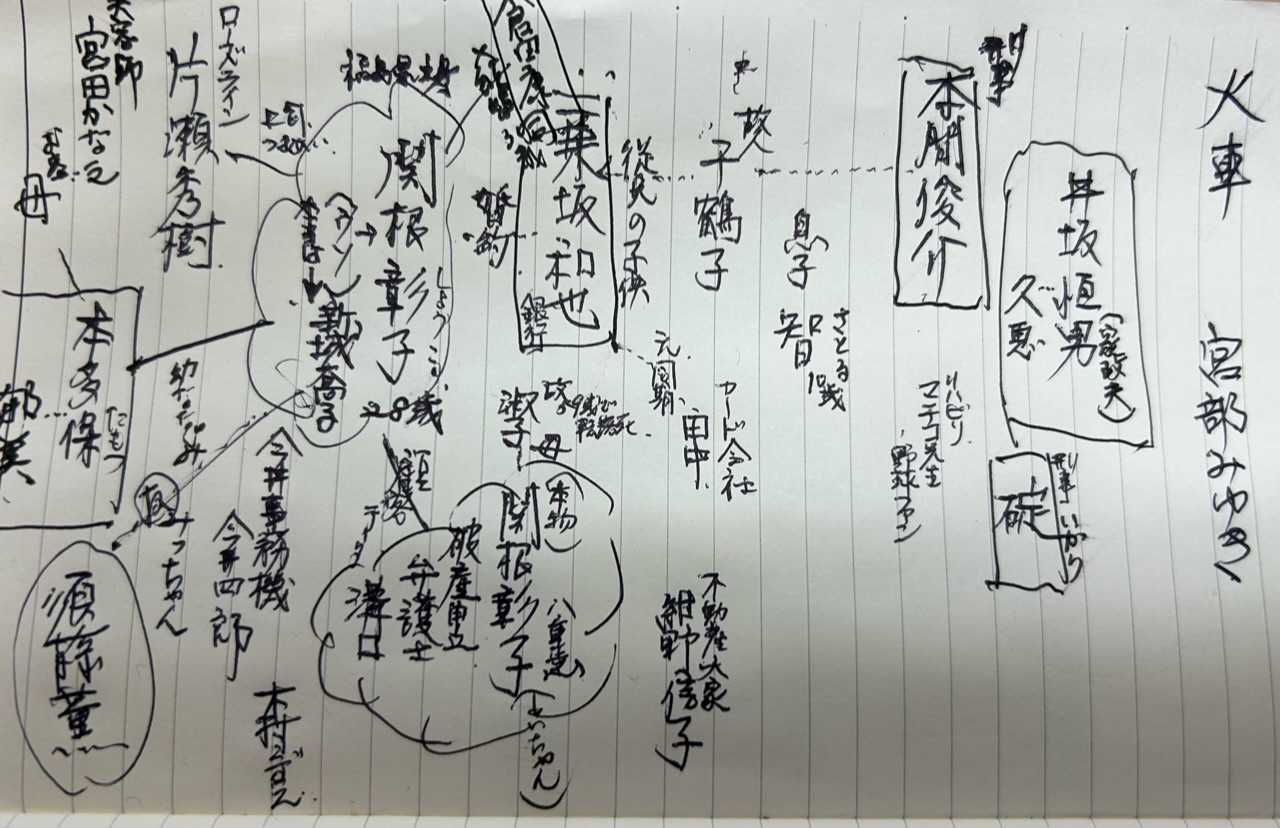 火車 宮部みゆき
井坂恒男
(家政夫)
久恵
刑事 いかり
碇
刑事
本間俊介
リハビリ
マチコ先生
野球ファン
さとる
息子 智 10歳
故
千鶴子
カード会社
元同期 田中
不動産大家
紺野信子
従兄の子供
栗坂和也
銀行
婚約
母
淑子
(本物)
関根彰子
八重歯
(しいちゃん)
破産申立
弁護士
溝口
しょうこ
関根彰子 28歳
(ウソ)
本当は
新城喬子
今井事務機
今井四郎
みっちゃん
木村こずえ
ローズライン
片瀬秀樹
幼なじみ
たもつ
本多保
郁美
母
宮田かなえ
須藤薫